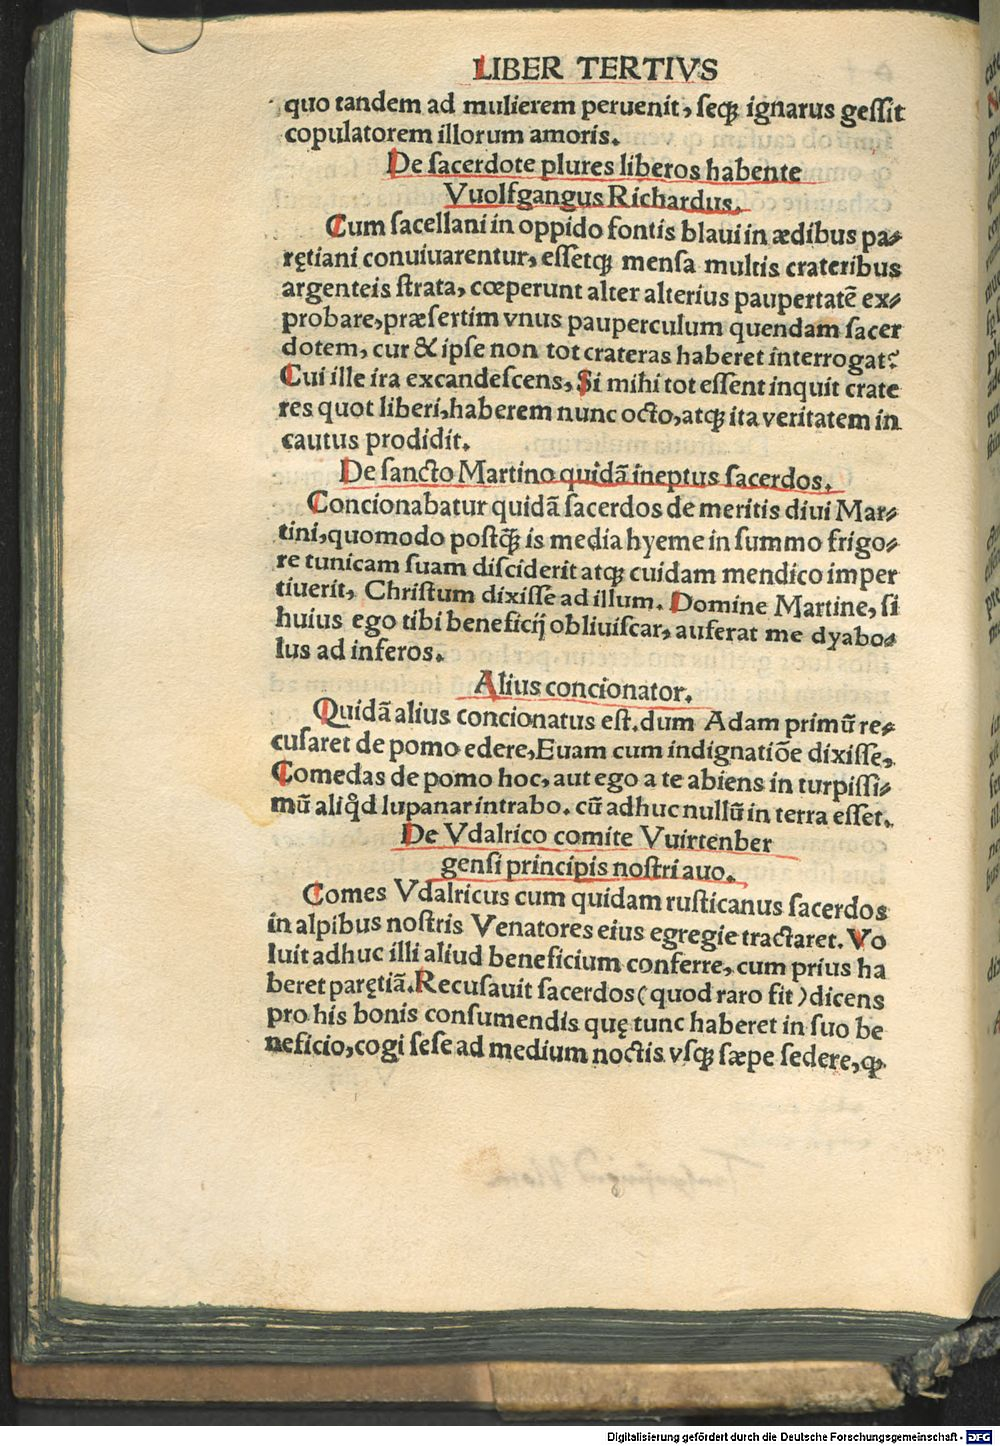 LIBER TERTIVS
quo tandem ad mulierem peruenit, ſeqꝫ ignarus geſſit
copulatorem illorum amoris.
De ſacerdote plures liberos habente
Vuolfgangus Richardus.
Cum ſacellani in oppido fontis blaui in ædibus pa⸗
rętiani conuiuarentur, eſſetqꝫ menſa multis crateribus
argenteis ſtrata, cœperunt alter alterius paupertatē ex⸗
probare, præſertim vnus pauperculum quendam ſacer
dotem, cur & ipſe non tot crateras haberet interrogat?
Cui ille ira excandeſcens, Si mihi tot eſſent inquit crate
res quot liberi, haberem nunc octo, atqꝫ ita veritatem in
cautus prodidit.
De ſancto Martino quidā ineptus ſacerdos.
Concionabatur quidā ſacerdos de meritis diui Mar⸗
tini, quomodo poſtqꝫ̄ is media hyeme in ſummo frigo⸗
re tunicam ſuam diſciderit atqꝫ cuidam mendico imper
tiuerit, Chriſtum dixiſſe ad illum. Domine Martine, ſi
huius ego tibi beneficij obliuiſcar, auferat me dyabo⸗
lus ad inferos.
Alius concionator.
Quidā alius concionatus eſt. dum Adam primū re⸗
cuſaret de pomo edere, Euam cum indignatiōe dixiſſe,
Comedas de pomo hoc, aut ego a te abiens in turpiſſi⸗
mū aliq̊d lupanar intrabo. cū adhuc nullū in terra eſſet.
De Vdalrico comite Vuirtenber
genſi principis noſtri auo.
Comes Vdalricus cum quidam ruſticanus ſacerdos
in alpibus noſtris Venatores eius egregie tractaret. Vo
luit adhuc illi aliud beneficium conferre, cum prius ha
beret parętiā. Recuſauit ſacerdos (quod raro fit) dicens
pro his bonis conſumendis quę tunc haberet in ſuo be
neficio, cogi ſeſe ad medium noctis vſqꝫ ſæpe ſedere, ꝙ
Digitalisierung gefördert durch die Deutsche Forschungsgemeinschaft - DFG